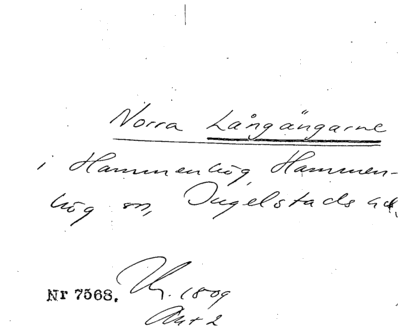 Norra Långängarne
i Hammenhög, Hammen-
hög sn, Ingelstads hd.
Nr 7568.
1809
Akt 2